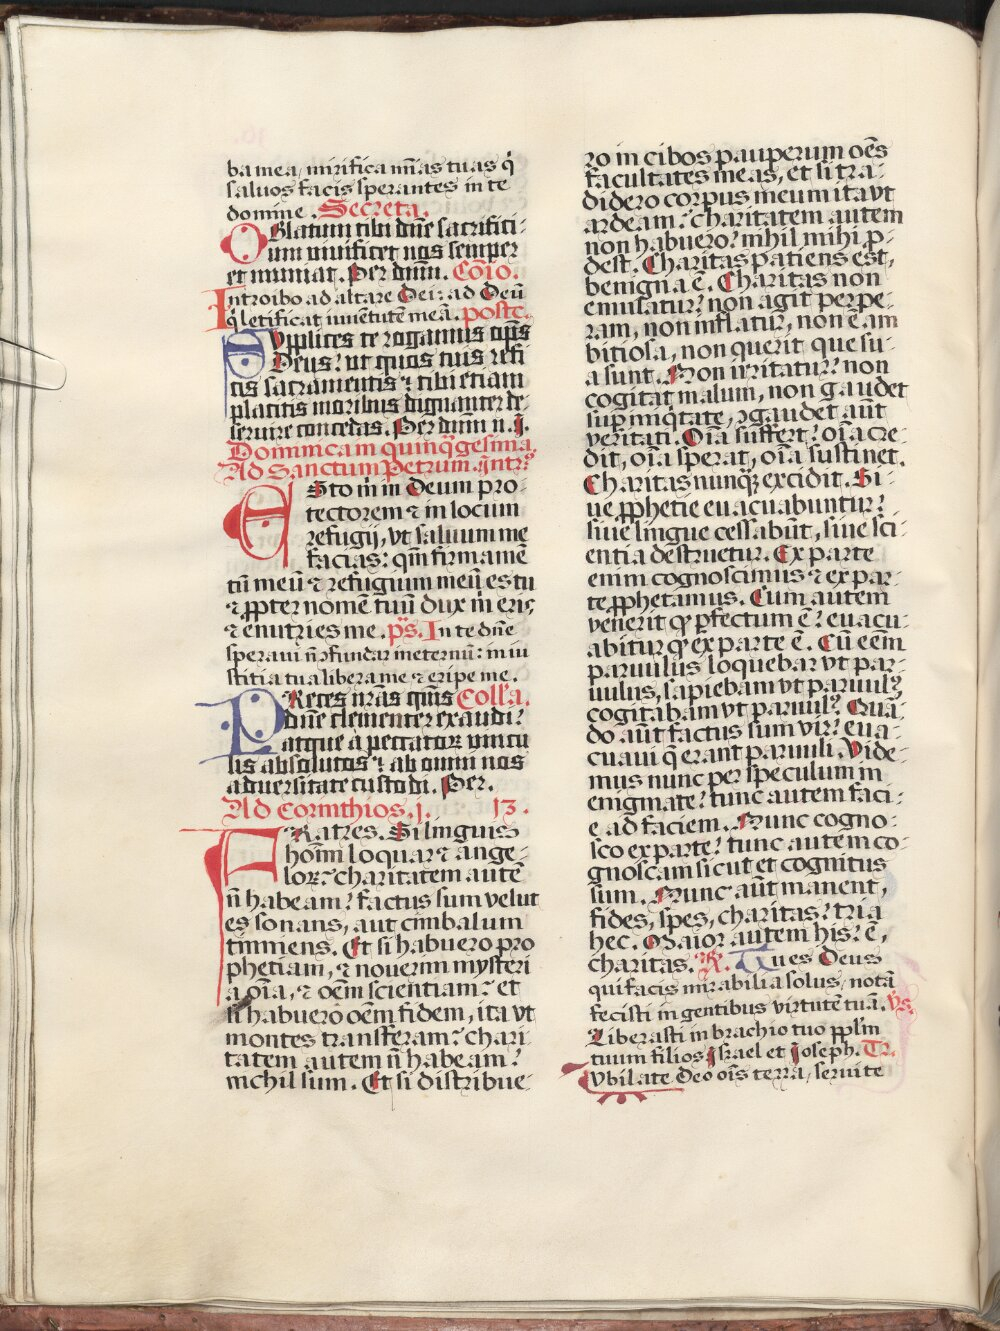 ba mea, mirifica mīas tuas q̇
saluos facis sperantes in te
domine. Secreta.
OBlatum tibi dn̄e sacrifici-
um viuificet nos semper
et muniat. Per dnm̄. Cōio.
Introibo ad altare Dei: ad Deū
q̇ letificat iuuētutē meā. postc.
SVpplices te rogamus op̄s
Deus: ut quos tuis refi
cis sacramentis ⁊ tibi etiam
placitis moribus dignanter de-
seruire concedas. Per dnm̄ n. J.
Dominica in quinq̄gesima
Ad Sanctum Petrum. Intr.
ESto m̄ in Deum pro-
tectorem ⁊ in locum
refugij, vt saluum me
facias: qm̄ firmamē
tū meū ⁊ refugium meū es tu
⁊ ꝓpter nomē tuū dux m̄ eris
⁊ enutries me. p̄s. In te dn̄e
speraui n̄ ↄfundar in eternū: in iu
stitia tua libera me ⁊ eripe me.
PReces nr̄as qm̄s Colla.
dn̄e clementer exaudi:
atque a peccatoꝝ vincu
lis absolutos ⁊ ab omni nos
aduersitate custodi. Per.
Ad Corinthios. j. 13.
FRatres. Si linguis
hoīm loquar ⁊ ange-
loꝝ: charitatem autē
n̄ habeam: factus sum velut
es sonans, aut cimbalum
tinniens. Et si habuero pro
phetiam, ⁊ nouerim mysteri
a oīa, ⁊ oēm scientiam: et
si habuero oēm fidem, ita vt
montes transferam: chari
tatem autem n̄ habeam:
nichil sum. Et si distribue-
ro in cibos pauperum oēs
facultates meas, et si tra-
didero corpus meum ita vt
ardeam: charitatem autem
non habuero: nihil mihi ꝓ-
dest. Charitas patiens est,
benigna ē. Charitas non
emulatur: non agit perpe-
ram, non inflatur, non ē am
bitiosa, non querit que su-
a sunt. Non irritatur: non
cogitat malum, non gaudet
suꝑ iniq̇tate, ↄgaudet aūt
veritati. Oīa suffert: oīa cre-
dit, oīa sperat, oīa sustinet.
Charitas nunqꝫ excidit. Si-
ue ꝓphetie euacuabuntur:
siue lingue cessabūt, siue sci-
entia destruetur. Ex parte
enim cognoscimus ⁊ ex par-
te ꝓphetamus. Cum autem
venerit qꝫ ꝑfectum ē: euacu-
abitur qꝫ ex parte ē. Cū eēm
paruulus loquebar vt par-
uulus, sapiebam vt paruulꝰ
cogitabam vt paruulꝰ. Quā-
do aūt factus sum vir: eua-
cuaui q̄ erant paruuli. Vide-
mus nunc per speculum in
enigmate: tunc autem faci-
e ad faciem. Nunc cogno-
sco ex parte: tunc autem co-
gnoscam sicut et cognitus
sum. Nunc aūt manent,
fides, spes, charitas: tria
hec. Maior autem his: ē,
charitas. R. Tu es Deus
qui facis mirabilia solus, notā
fecisti in gentibus virtutē tuā. Vs.
Liberasti in brachio tuo pplm̄
tuum filios Israel et Joseph. Tr.
Iubilate Deo oīs terra, seruite